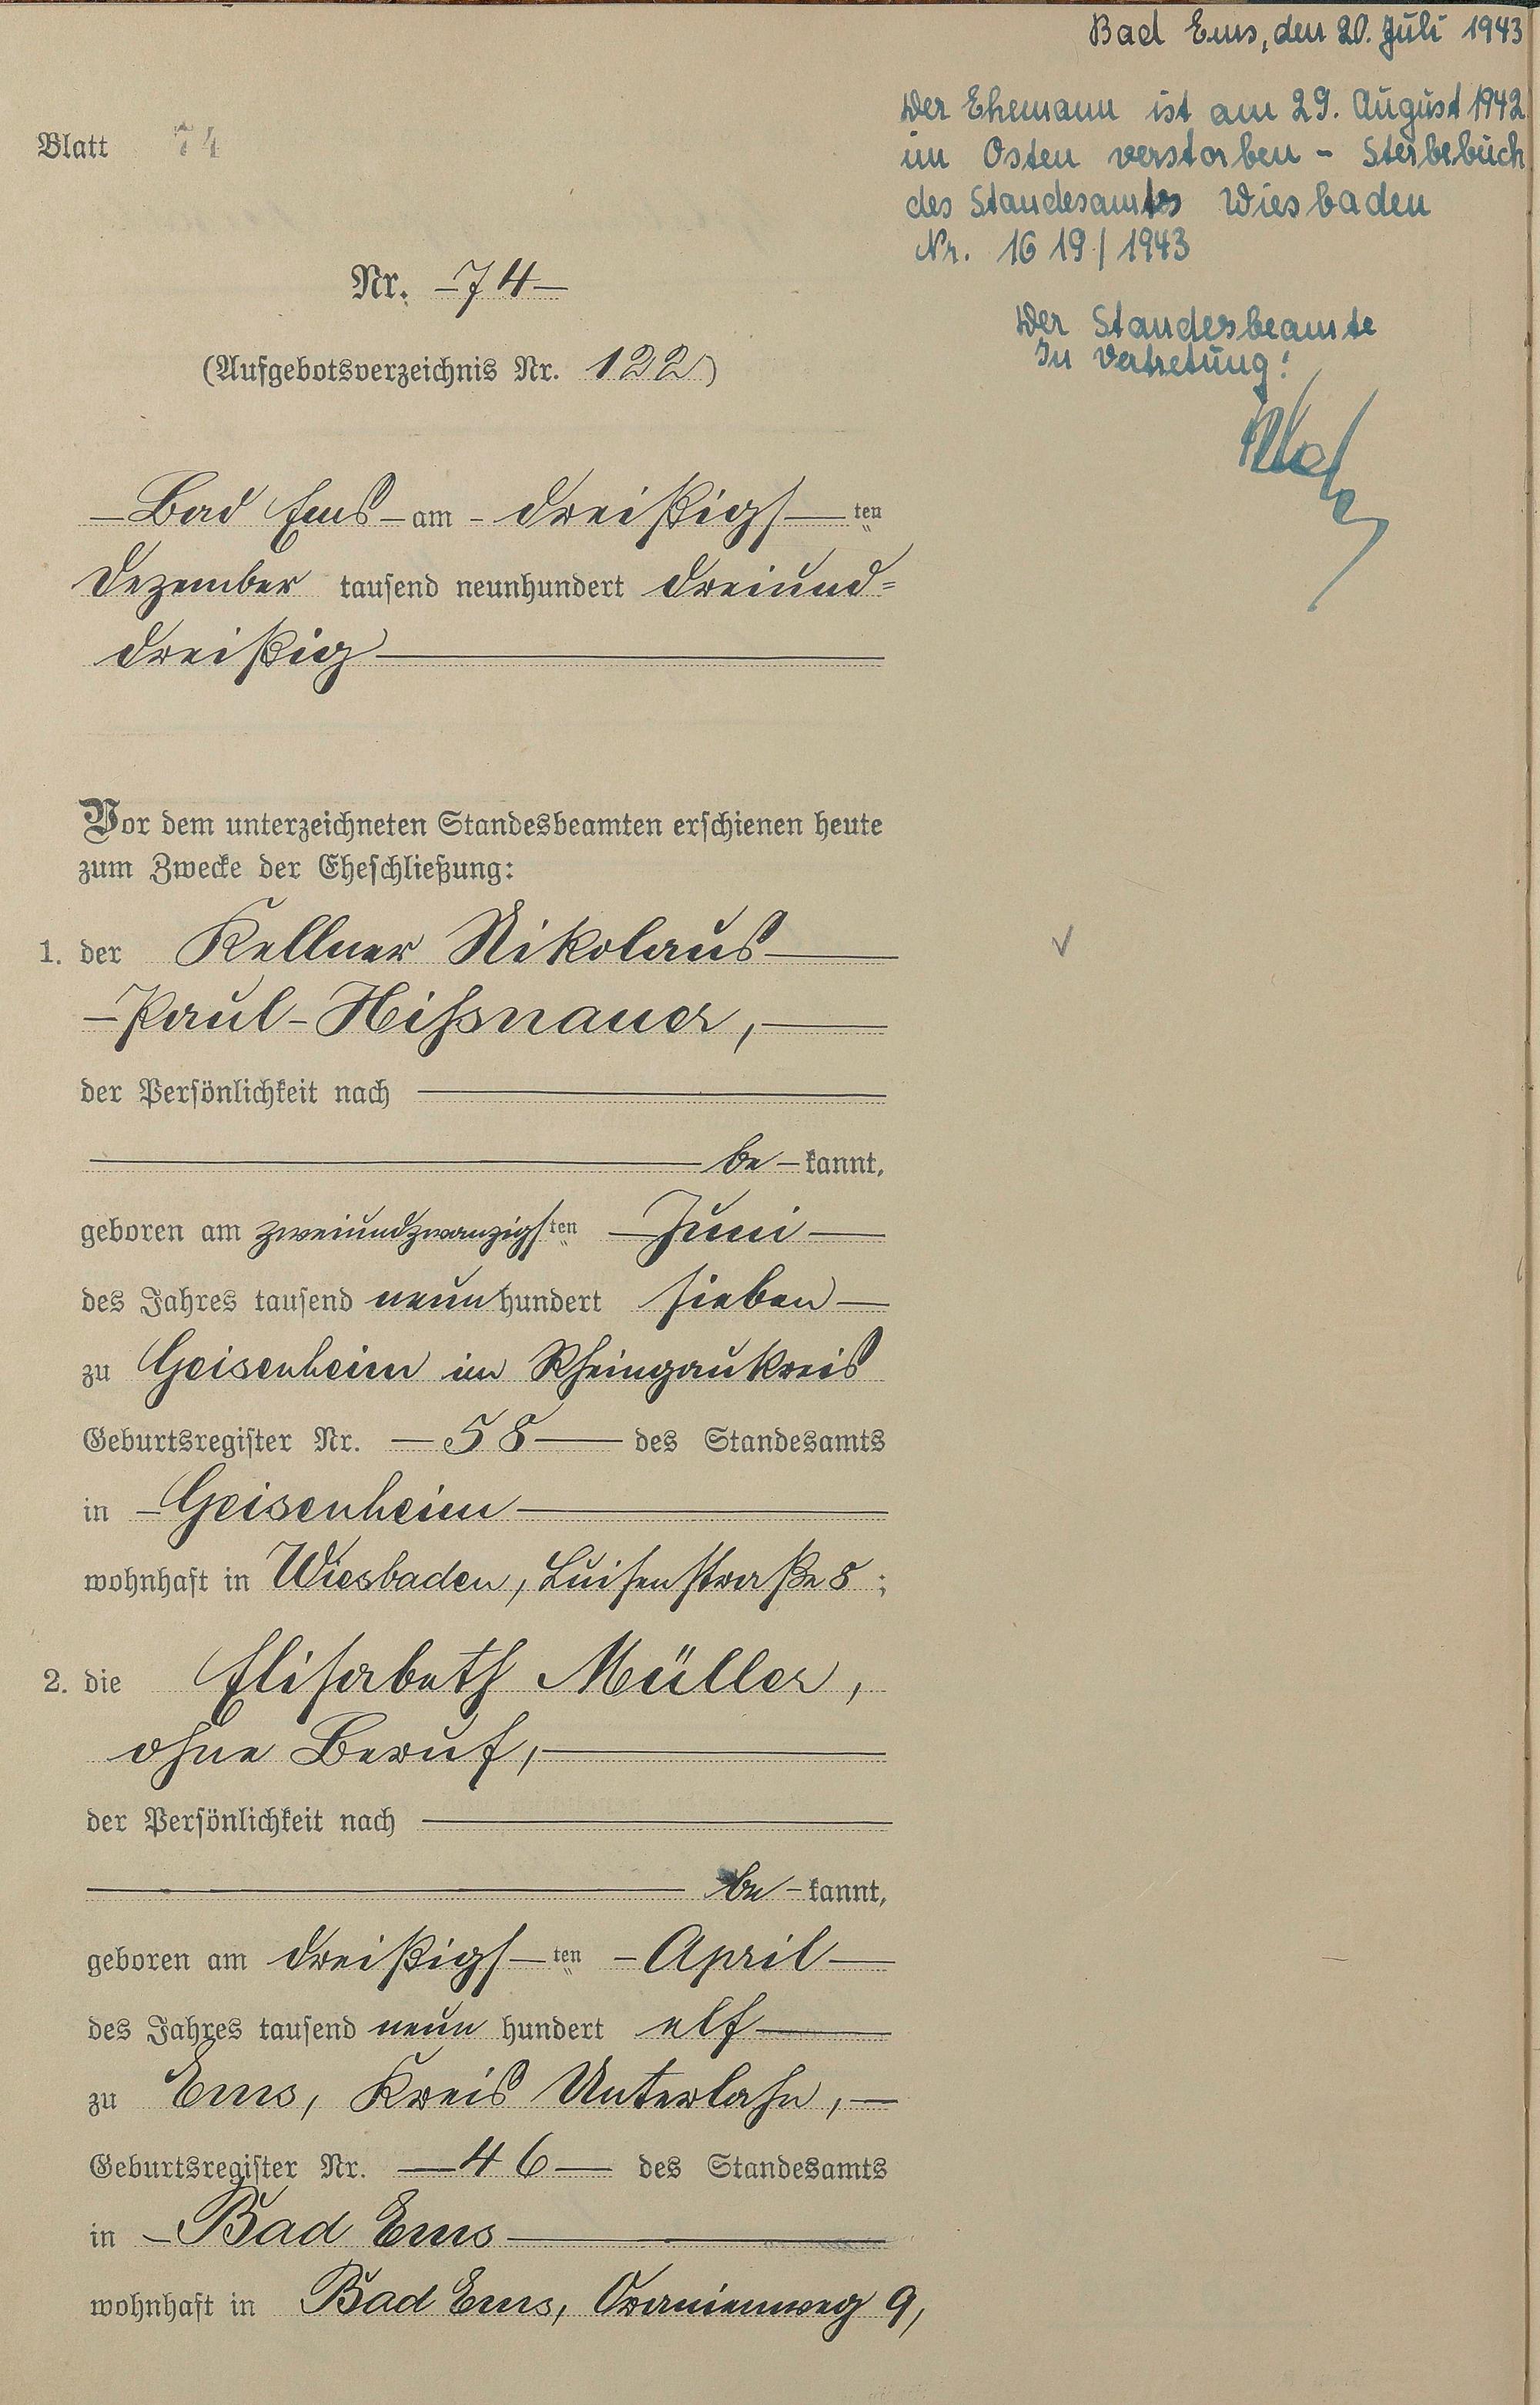 Bad Ems, den 20. Juli 1943
Der Ehemann ist am 29. August 1942
im Osten verstorben - Sterbebuch
des Standesamtes Wiesbaden
Nr. 1619/1943
Der Standesbeamte
In Vertretung:
Blatt 74
Nr. -74-
(Aufgebotsverzeichnis Nr. 122)
-Bad Ems- am - dreißigs- ten
Dezember tausend neunhundert dreiund=
dreißig
Vor dem unterzeichneten Standesbeamten erschienen heute
zum Zwecke der Eheschließung:
1. der Kellner Nikolaus
-Paul- Hißnauer,
der Persönlichkeit nach
be- kannt,
geboren am zweiundzwanzigsten Juni
des Jahres tausend neunhundert sieben
zu Geisenheim im Rheingaukreis
Geburtsregister Nr. -58- des Standesamts
in -Geisenheim
wohnhaft in Wiesbaden, Luisenstraße 8;
2. die Elisabeth Müller,
ohne Beruf,
der Persönlichkeit nach
be- kannt,
geboren am dreißigs- ten - April
des Jahres tausend neun hundert elf
zu Ems, Kreis Unterlahn,
Geburtsregister Nr. -46- des Standesamts
in -Bad Ems
wohnhaft in Bad Ems, Oranienweg 9,